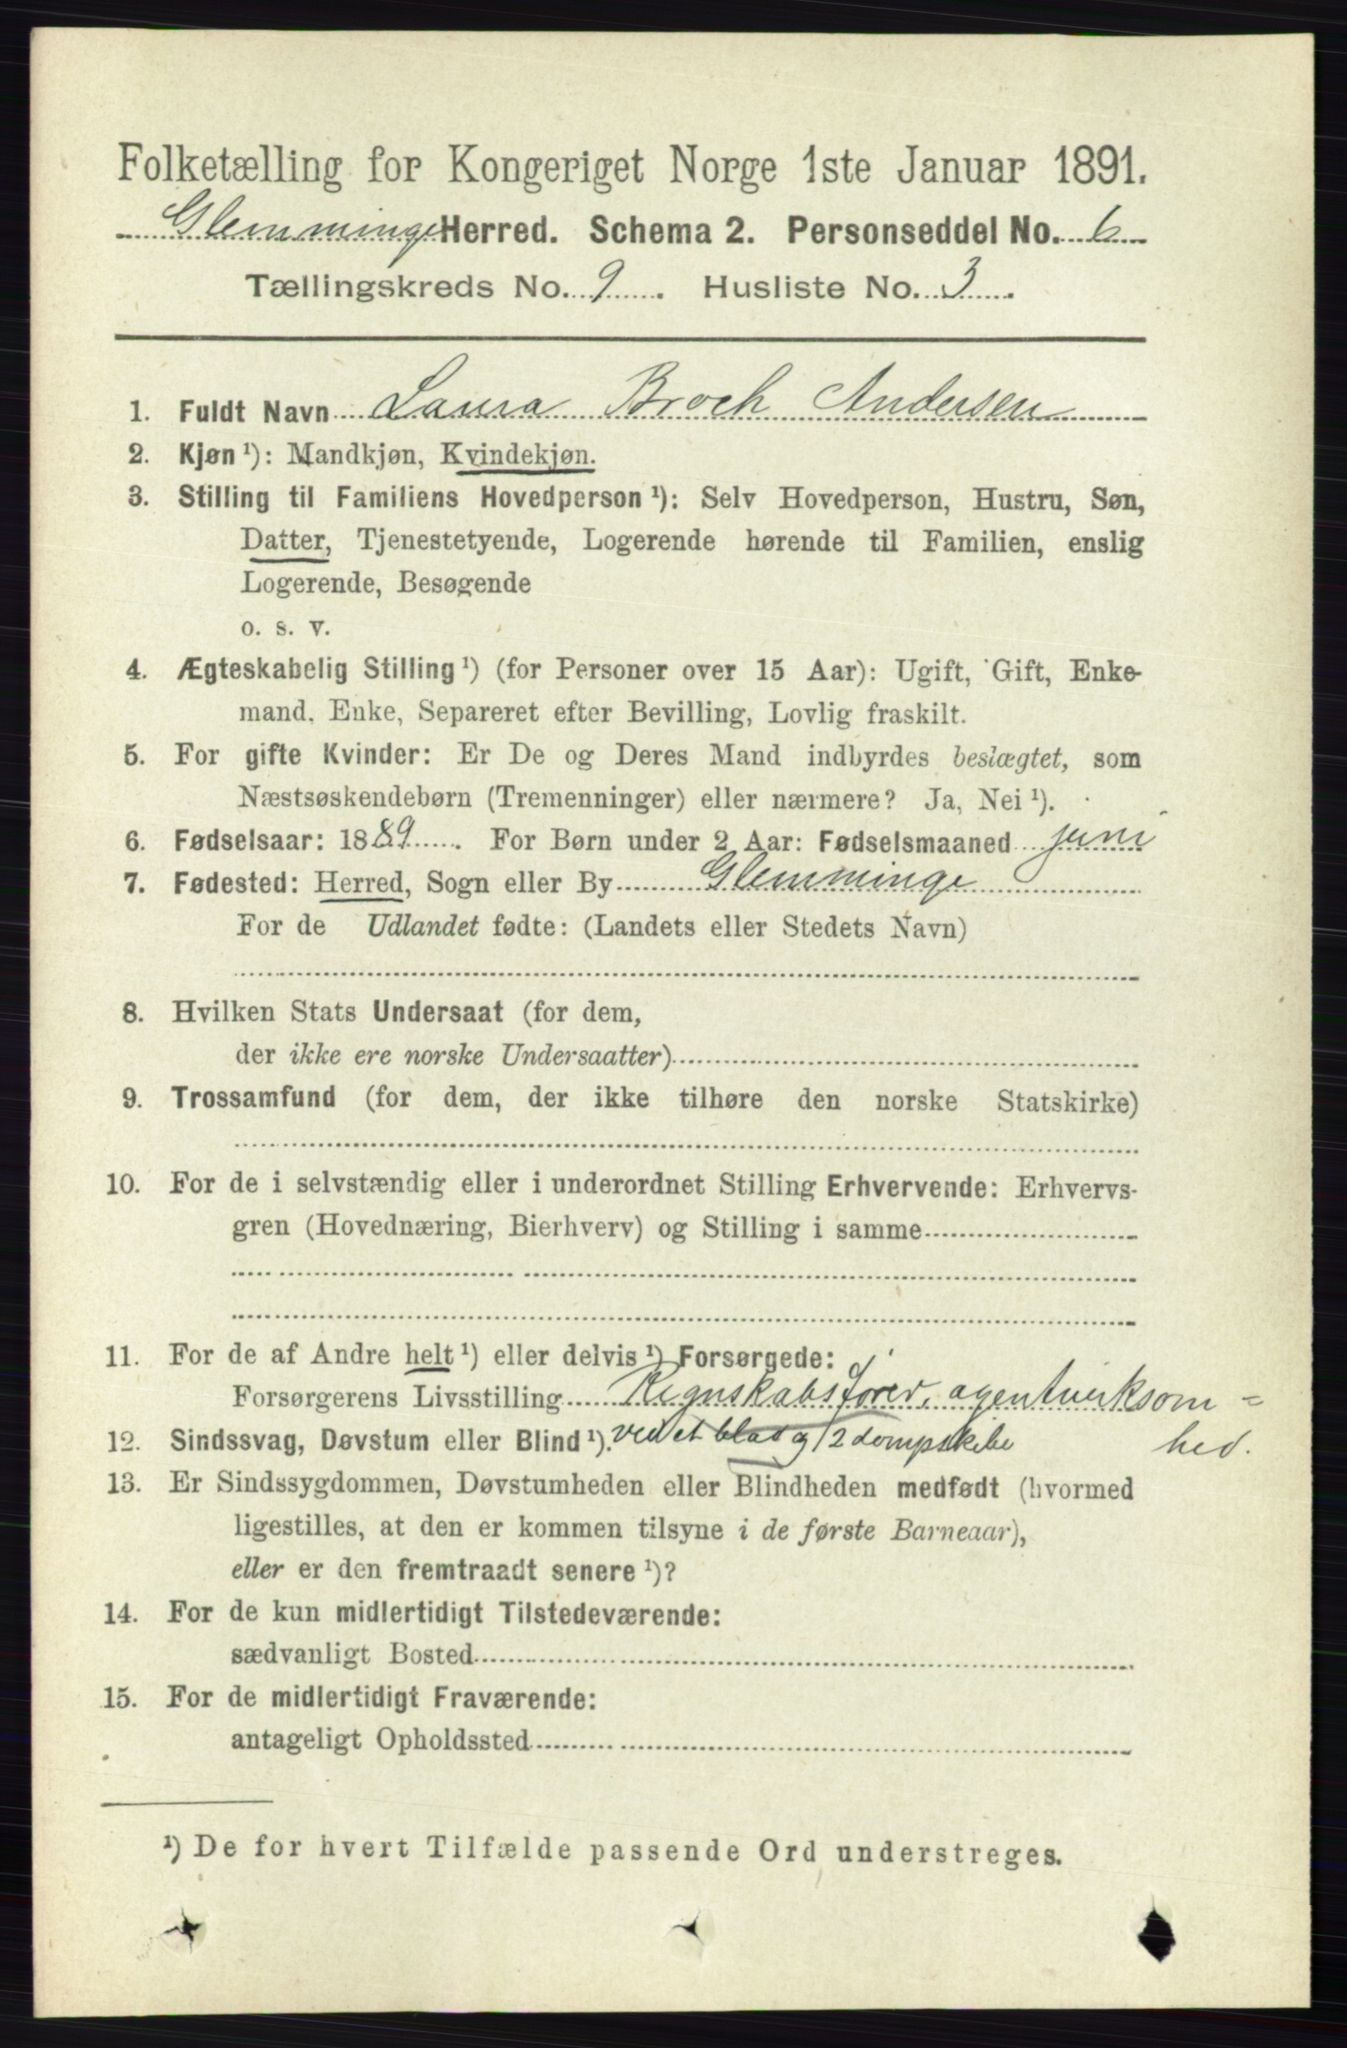 Folketælling for Kongeriget Norge 1ste Januar 1891.
Glemminge Herred. Schema 2. Personseddel No. 6
Tællingskreds No. 9. Husliste No. 3.
1. Fuldt Navn Laura Broch Andersen
2. Kjøn ¹): Mandkjøn, Kvindekjøn.
3. Stilling til Familiens Hovedperson ¹): Selv Hovedperson, Hustru, Søn,
Datter, Tjenestetyende, Logerende hørende til Familien, enslig
Logerende, Besøgende
o. s. v.
4. Ægteskabelig Stilling ¹) (for Personer over 15 Aar): Ugift, Gift, Enke-
mand, Enke, Separeret efter Bevilling, Lovlig fraskilt.
5. For gifte Kvinder: Er De og Deres Mand indbyrdes beslægtet, som
Næstsøskendebørn (Tremenninger) eller nærmere? Ja, Nei ¹).
6. Fødselsaar: 1889. For Børn under 2 Aar: Fødselsmaaned juni
7. Fødested: Herred, Sogn eller By Glemminge
For de Udlandet fødte: (Landets eller Stedets Navn)
8. Hvilken Stats Undersaat (for dem,
der ikke ere norske Undersaatter)
9. Trossamfund (for dem, der ikke tilhøre den norske Statskirke)
10. For de i selvstændig eller i underordnet Stilling Erhvervende: Erhvervs-
gren (Hovednæring, Bierhverv) og Stilling i samme
11. For de af Andre helt ¹) eller delvis ¹) Forsørgede:
Forsørgerens Livsstilling Regnskabsfører, agentvirksom=
12. Sindssvag, Døvstum eller Blind ¹). ved et blad og 2 dampskibe hed.
13. Er Sindssygdommen, Døvstumheden eller Blindheden medfødt (hvormed
ligestilles, at den er kommen tilsyne i de første Barneaar),
eller er den fremtraadt senere ¹)?
14. For de kun midlertidigt Tilstedeværende:
sædvanligt Bosted
15. For de midlertidigt Fraværende:
antageligt Opholdssted
¹) De for hvert Tilfælde passende Ord understreges.